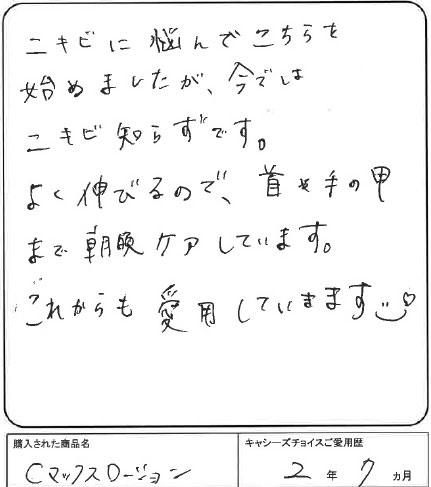 ニキビに悩んでこちらを
始めましたが、今では
ニキビ知らずです。
よく伸びるので、首や手の甲
まで朝晩ケアしています。
これからも愛用していきます
購入された商品名
Cマックスローション
キャシーズチョイスご愛用歴
2年7ヵ月